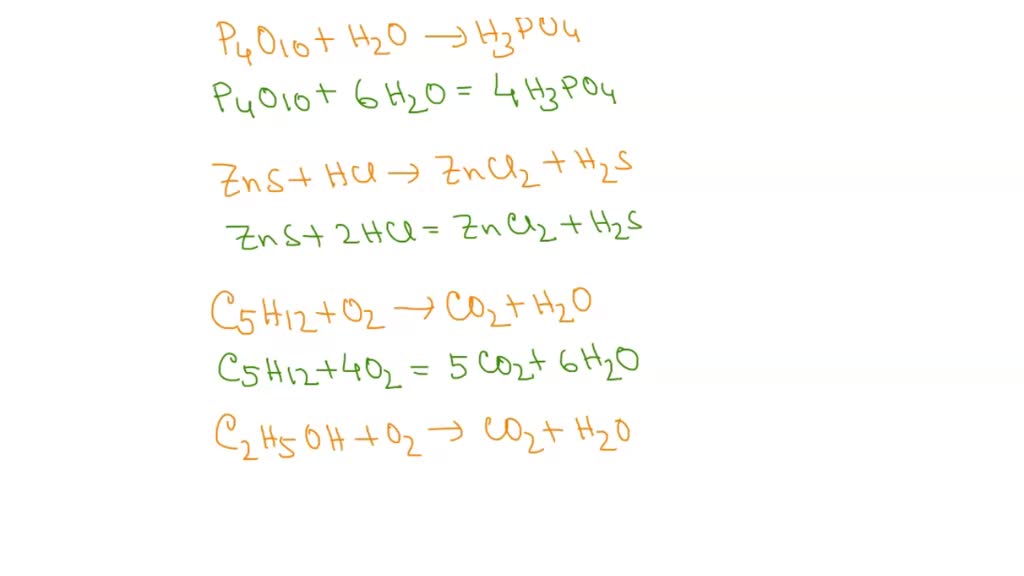 P4O10 + H2O → H3PO4
P4O10 + 6H2O = 4H3PO4
ZnS + HCl → ZnCl2 + H2S
ZnS + 2HCl = ZnCl2 + H2S
C5H12 + O2 → CO2 + H2O
C5H12 + 4O2 = 5CO2 + 6H2O
C2H5OH + O2 → CO2 + H2O